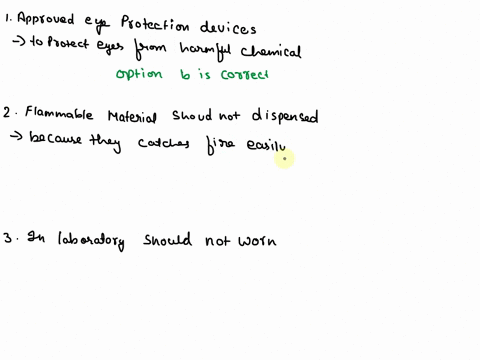 1. Approved eye Protection devices
→ to Protect eyes from harmful chemical
option b is correct
2. Flammable Material Shoud not dispensed
→ because they catches fire easily
3. In laboratory should not worn